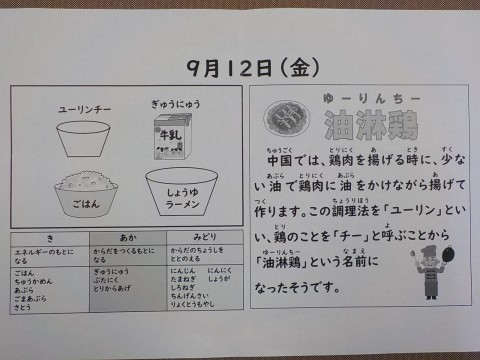 9月12日(金)
ユーリンチー
ぎゅうにゅう
牛乳
ごはん
しょうゆ
ラーメン
き
あか
みどり
エネルギーのもとに
なる
からだをつくるもとに
なる
からだのちょうしを
ととのえる
ごはん
ちゅうかめん
あぶら
ごまあぶら
さとう
ぎゅうにゅう
ぶたにく
とりからあげ
にんじん にんにく
たまねぎ しょうが
しろねぎ
ちんげんさい
りょくとうもやし
ゆーりんちー
油淋鶏
ちゅうごく とりにく あ とき すく
中国では、鶏肉を揚げる時に、少な
あぶら とりにく あぶら あ
い油で鶏肉に油をかけながら揚げて
つく ちょうりほう
作ります。この調理法を「ユーリン」とい
とり よ
い、鶏のことを「チー」と呼ぶことから
ゆーりんちー なまえ
「油淋鶏」という名前に
なったそうです。